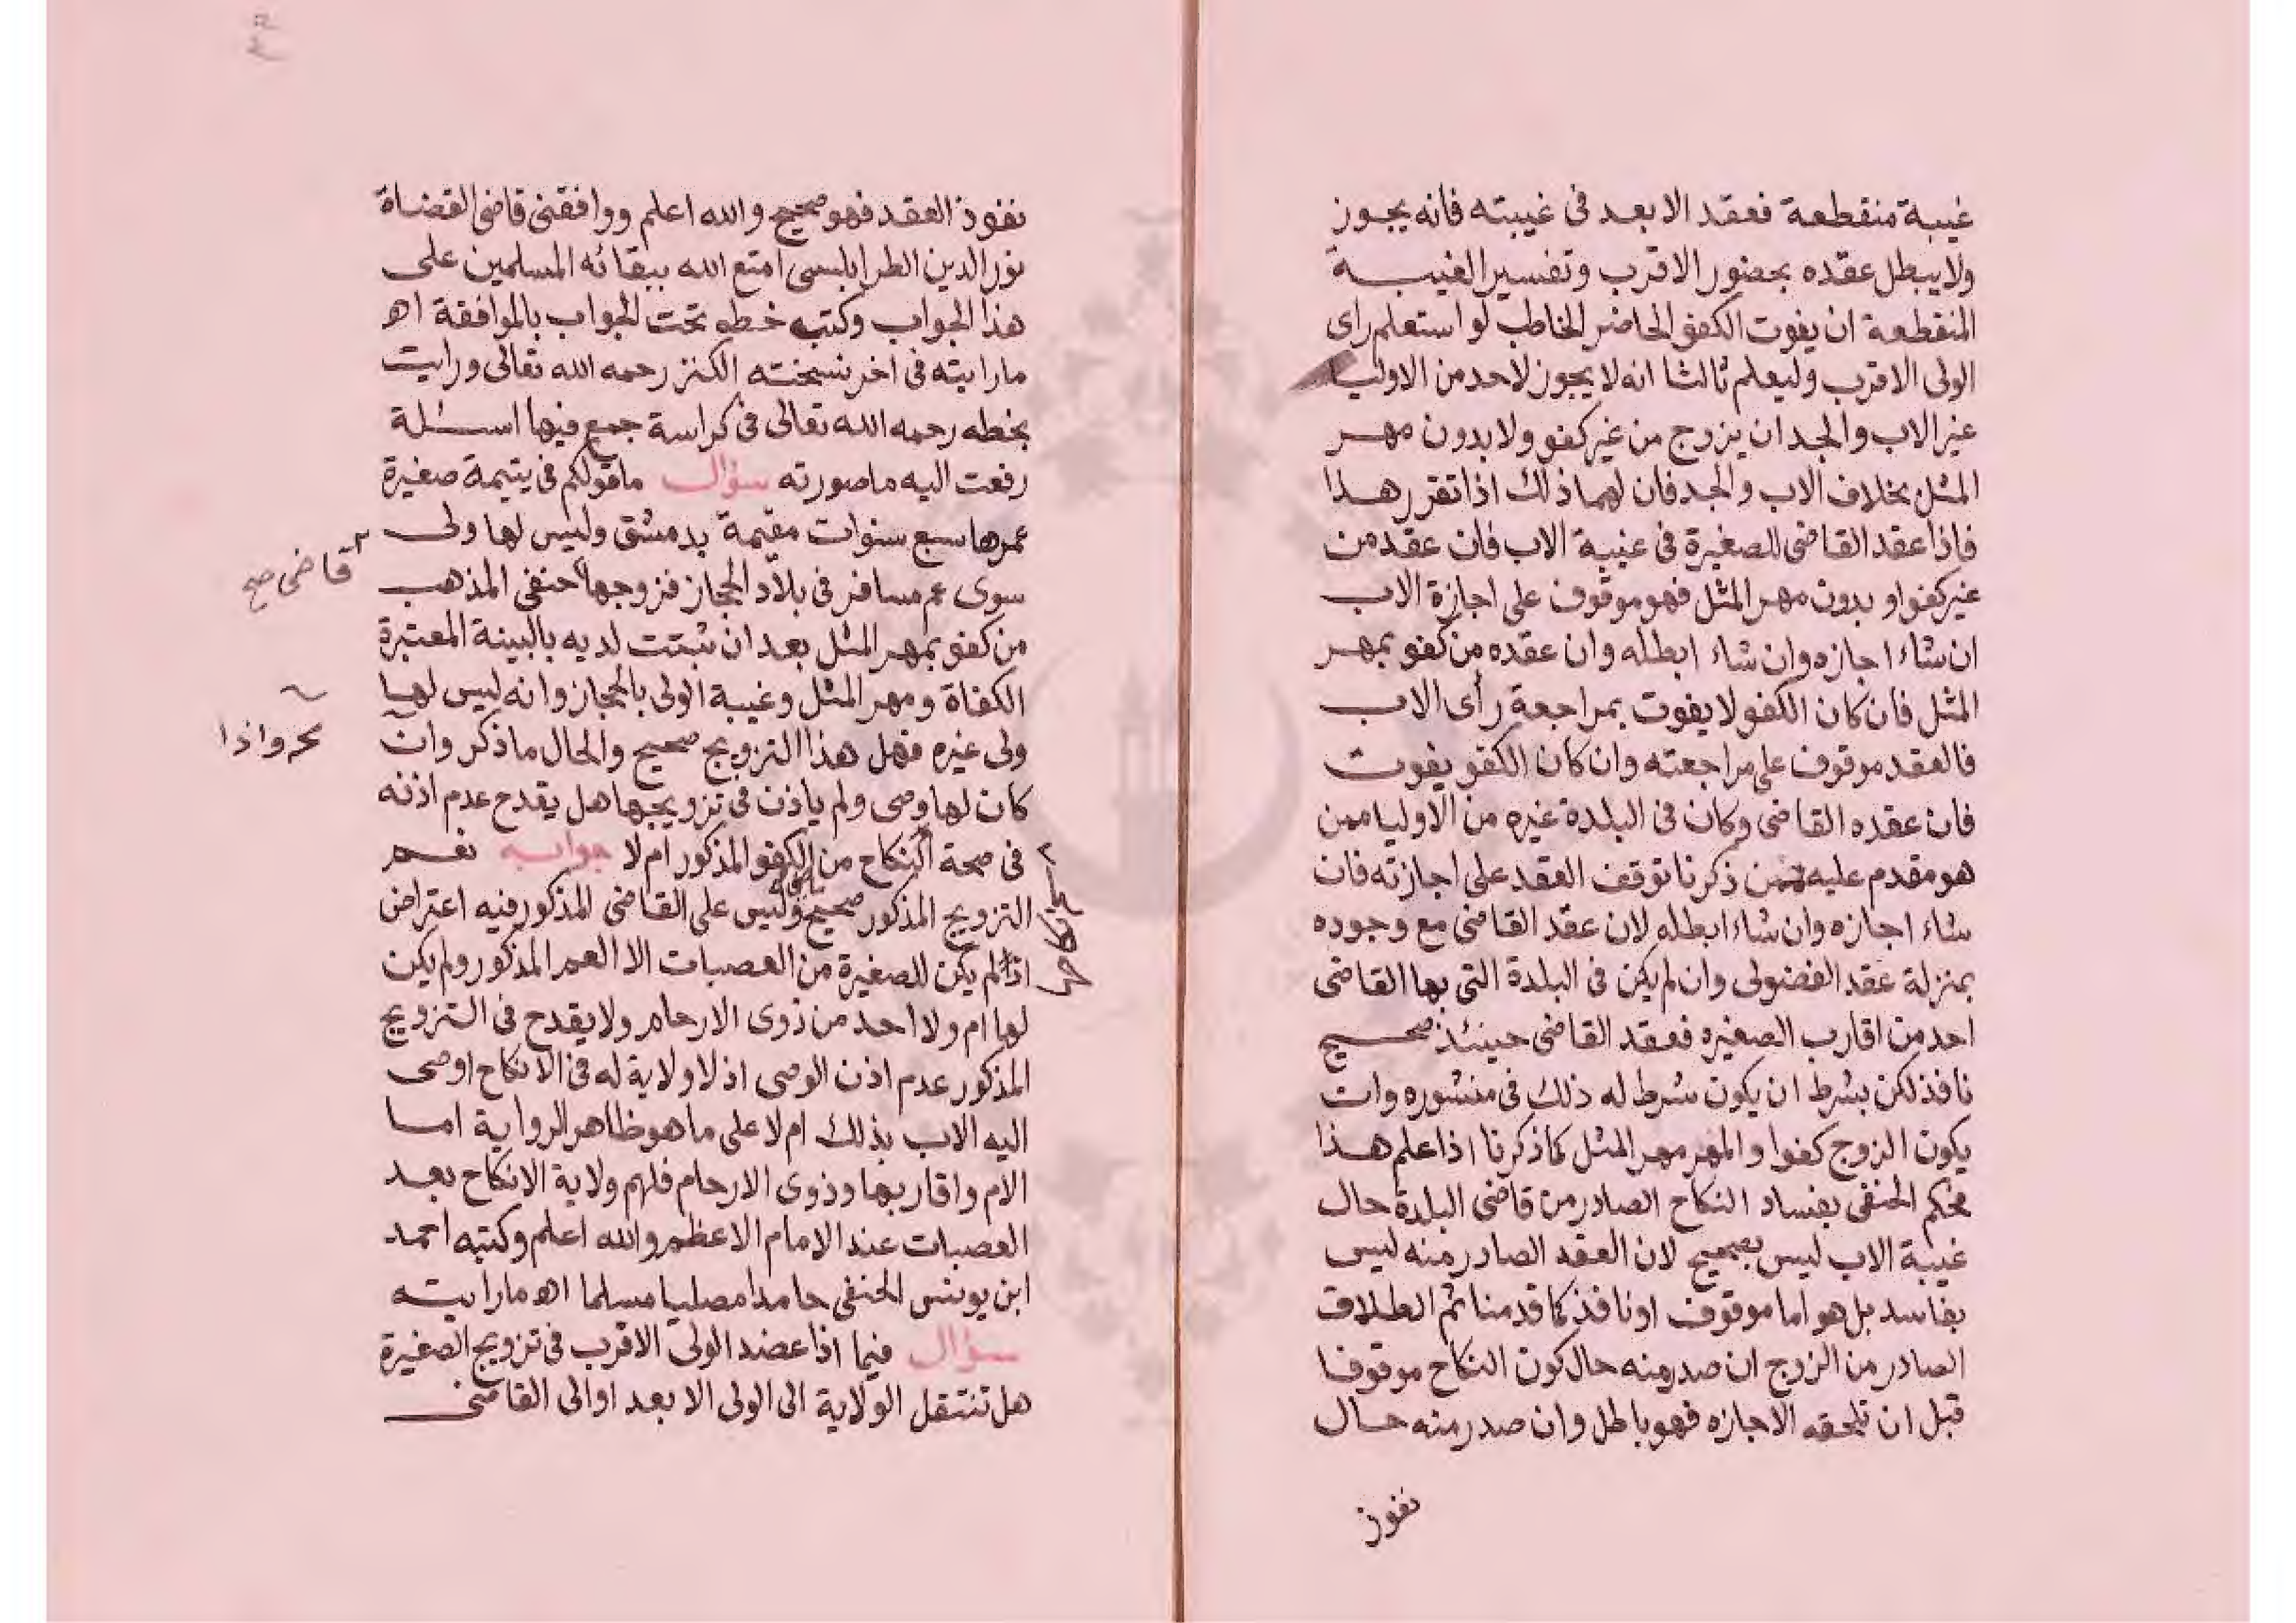 غيبة منقطعة فعقد الابعد فى غيبته فانه يجوز
ولايبطل عقده بحضور الاقرب وتفسير الغيبة
المنقطعة ان يفوت الكفو الحاضر الخاطب لو استعلم راى
الولى الاقرب وليعلم ثالثا انه لا يجوز لاحد من الاوليا
غير الاب والجد ان يزوج من غير كفو ولا بدون مهر
المثل بخلاف الاب والجد فان لهما ذلك اذا تقرر هذا
فاذا عقد القاضى للصغيرة فى غيبة الاب فان عقد من
غير كفو او بدون مهر المثل فهو موقوف على اجازة الاب
ان شاء اجازه وان شاء ابطله وان عقده من كفو بمهر
المثل فان كان الكفو لا يفوت بمراجعة رأى الاب
فالعقد موقوف على مراجعته وان كان الكفو يفوت
فان عقده القاضى وكان فى البلدة غيره من الاوليا ممن
هو مقدم عليه ممن ذكرنا توقف العقد على اجازته فان
شاء اجازه وان شاء ابطله لان عقد القاضى مع وجوده
بمنزلة عقد الفضولى وان لم يكن فى البلدة التى بها القاضى
احد من اقارب الصغيره فعقد القاضى حينئذ صحيح
نافذ لكن بشرط ان يكون شرط له ذلك فى منشوره وان
يكون الزوج كفوا والمهر مهر المثل كما ذكرنا اذا علم هذا
فحكم الحنفى بفساد النكاح الصادر من قاضى البلدة حال
غيبة الاب ليس بصحيح لان العقد الصادر منه ليس
بفاسد بل هو اما موقوف او نافذ كما قدمنا ثم الطلاق
الصادر من الزوج ان صدر منه حال كون النكاح موقوفا
قبل ان تلحقه الاجازه فهو باطل وان صدر منه حال
نفوز
نفوذ العقد فهو صحيح والله اعلم ووافقنى قاضى القضاة
نور الدين الطرابلسى امتع الله ببقائه المسلمين على
هذا الجواب وكتب خطه تحت الجواب بالموافقة اه
ما رايته فى اخر نسخته الكنز رحمه الله تعالى ورايت
بخطه رحمه الله تعالى فى كراسة جمع فيها اسئلة
رفعت اليه ما صورته سؤال ما قولكم فى يتيمة صغيرة
عمرها سبع سنوات مقيمة بدمشق وليس لها ولى
سوى عم مسافر فى بلاد الحجاز فزوجها حنفى المذهب
قاضى صح
من كفو بمهر المثل بعد ان ثبتت لديه بالبينة المعتبرة
الكفاة ومهر المثل وغيبة الولى بالحجاز وانه ليس لها
ولى غيره فهل هذا التزويج صحيح والحال ما ذكر وان
واذا
كان لها وصى ولم ياذن فى تزويجها هل يقدح عدم اذنه
فى صحة النكاح من الكفو المذكور ام لا جواب نعم
التزويج المذكور صحيح وليس على القاضى المذكور فيه اعتراض
اذا لم يكن للصغيرة من العصبات الا العم المذكور ولم يكن
لها ام ولا احد من ذوى الارحام ولا يقدح فى التزويج
المذكور عدم اذن الوصى اذ لا ولاية له فى الانكاح اوصى
اليه الاب بذلك ام لا على ما هو ظاهر الرواية اما
الام واقاربها وذوى الارحام فلهم ولاية الانكاح بعد
العصبات عند الامام الاعظم والله اعلم وكتبه احمد
ابن يونس الحنفى حامدا مصليا مسلما اه ما رايته
سؤال فيما اذا عضد الولى الاقرب فى تزويج الصغيرة
هل تنتقل الولاية الى الولى الابعد او الى القاضى